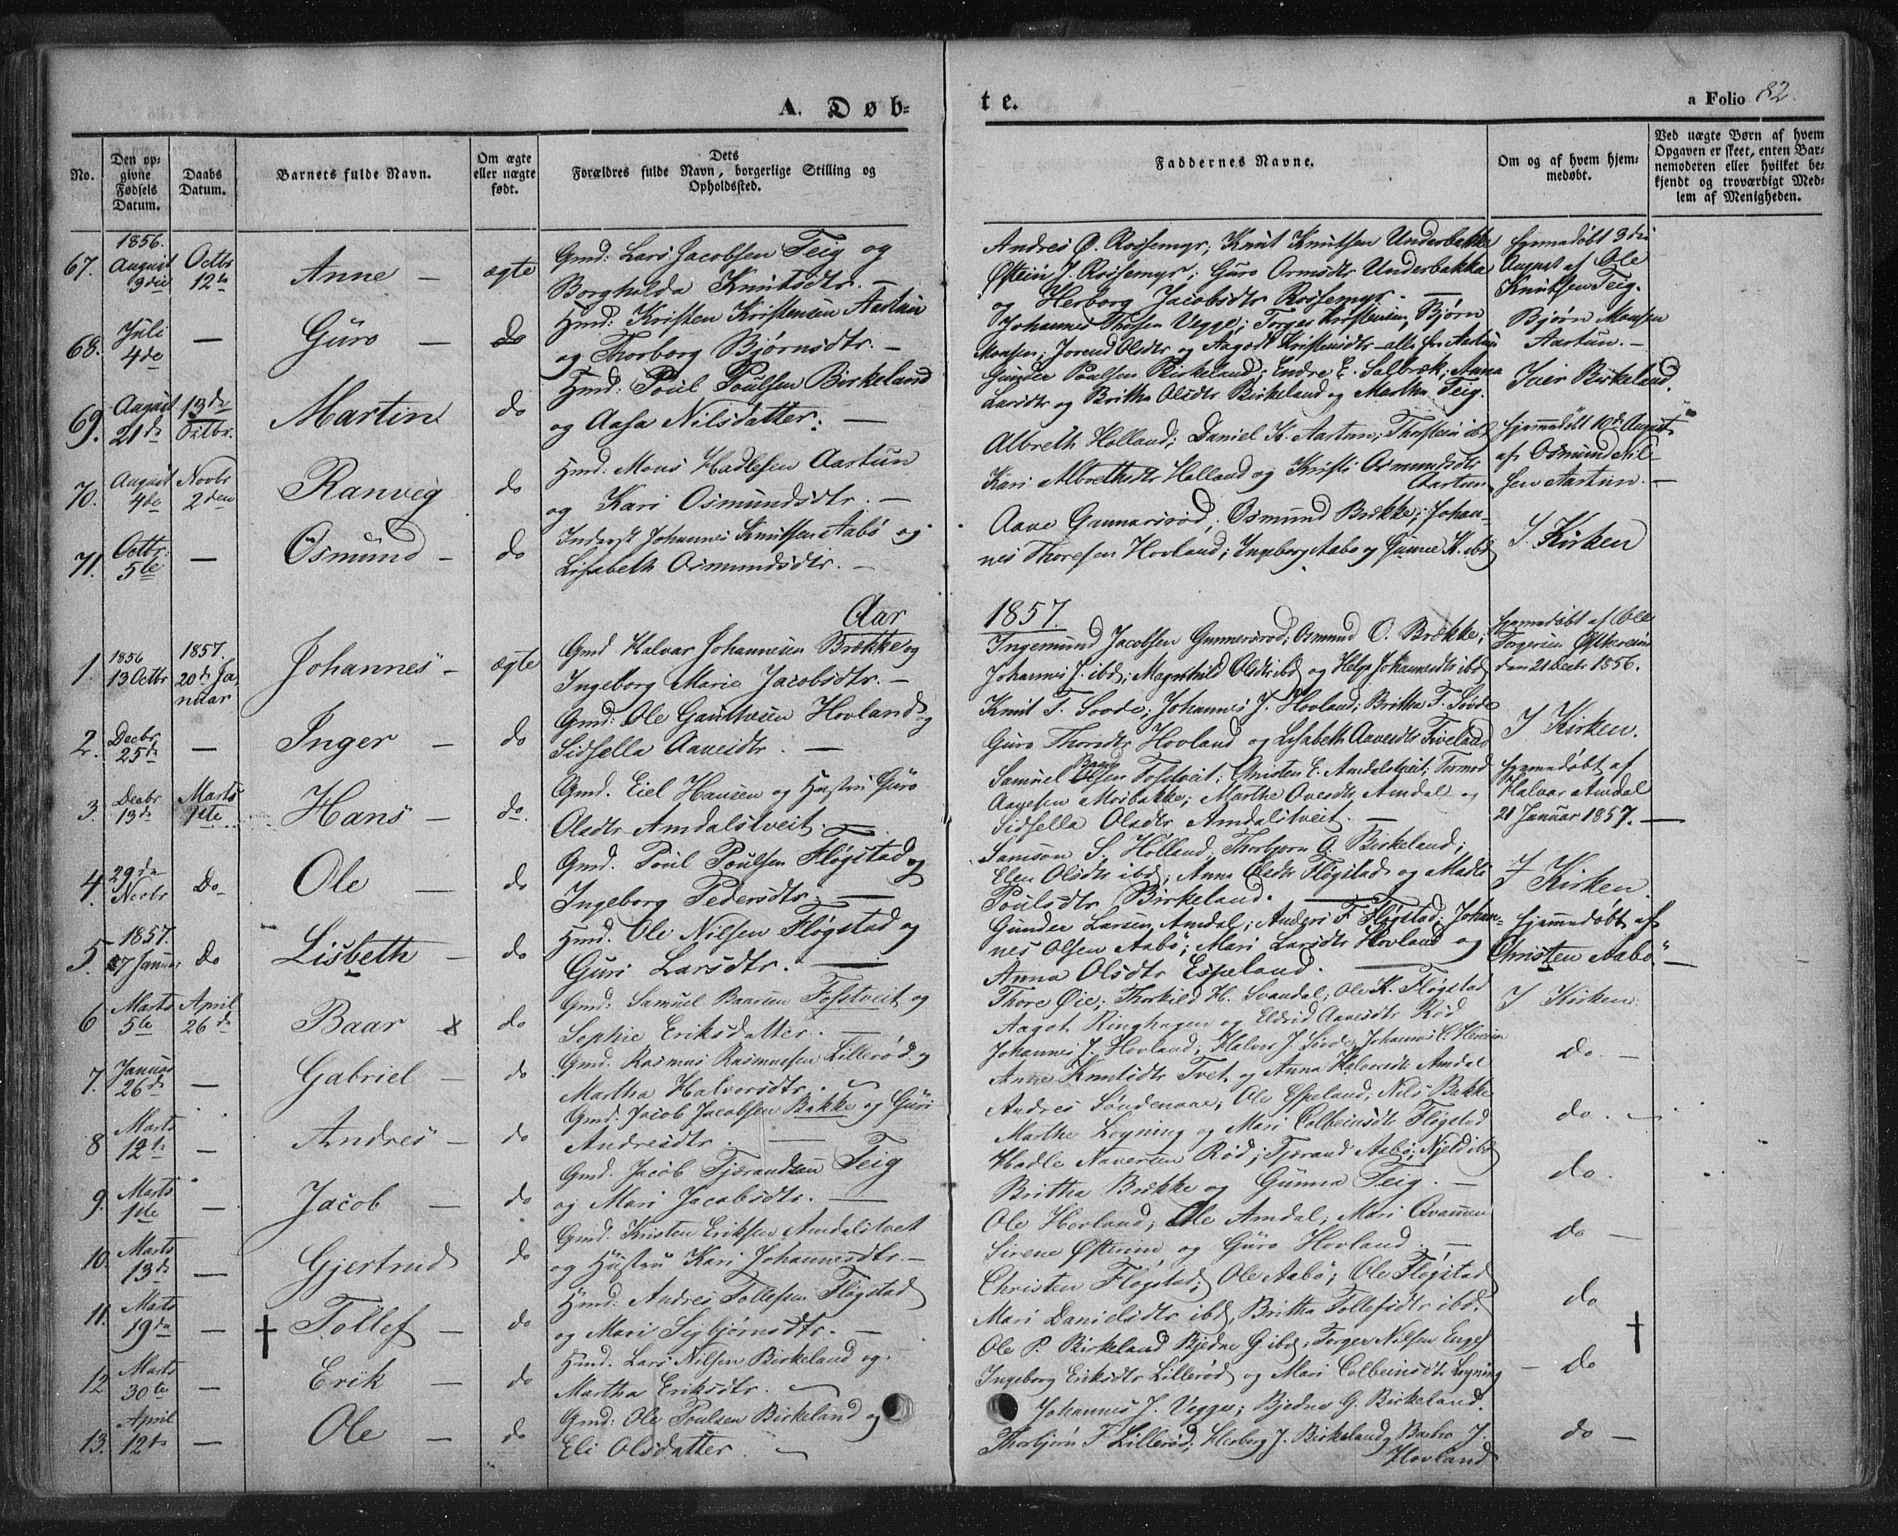 A. Døb-
te.
a Folio 82.
No.
Den op-
givne
Fødsels
Datum.
Daabs
Datum.
Barnets fulde Navn.
Om ægte
eller uægte
født.
Dets
Forældres fulde Navn, borgerlige Stilling og
Opholdssted.
Faddernes Navne.
Om og af hvem hjem-
medøbt.
Ved uægte Børn af hvem
Opgaven er skeet, enten Bar-
nemoderen eller hvilket be-
kjendt og troværdigt Med-
lem af Menigheden.
1856.
67. August 9de Octbr 12te Anne — ægte
Gmd: Lars Jacobsen Teig og
Borghilda Knutsdtr. —
Andres Ø. Rossemyr; Knut Knutsen Underbakke
Østein J. Rossemyr; Guro Ormsdtr Underbakka
og Herborg Jacobsdtr Rossemyr. —
hjemmedøbt 9de
August af Ole
Knutsen Teig.
68. Juli 4de — Guro — do
Hmd: Kristen Kristensen Aartun
og Thorborg Bjørnsdtr. —
Johannes Thosen Vegge; Torger Kristensen, Bjørn
Monsen; Jorend Olsdtr og Aagodt Kristensdtr alle fra Aartun
Bjørn Monsen
Aartun. —
69. August 21de 13de Octbr. Martin do
Hmd: Poul Poulsen Birkeland
og Aasa Nilsdatter: —
Gunder Poulsen Birkeland; Endre E. Salbræk; Anna
Larsdtr og Britha Olsdtr Birkeland og Martha Teig.
Iver Birkeland.
70. August 4de Novbr 2den Ranveig do
Hmd: Mons Hadlesen Aartun
og Kari Osmundsdtr. —
Albreth Holland; Daniel K. Aartun; Thostein ibd
Kari Albrethsdtr Holland og Kristi Osmundsdtr
Aartun.
hjemmedøbt 10de August
af Osmund Nil-
sen Aartun. —
71. Octbr. 5te — Osmund — do
Inderst Johannes Knutsen Aabø og
Lisabeth Osmundsdtr. —
Aave Gunnarsrod; Osmund Brække; Johan-
nes Thoresen Hovland; Ingeborg Aabø og Gunne K. ibd
I Kirken
Aar 1857.
1. 1856 13 Octbr 1857. 20de Ja-
nuar Johannes — ægte
Gmd Halvar Johannesen Brække og
Ingeborg Marie Jacobsdtr. —
Ingemund Jacobsen Gunnersrod; Osmund O. Brække;
Johannes J. ibd; Magnhild Olsdtr ibd og Helge Johannesdtr ibd
hjemmedøbt af Ole
Torgersen Østereim
den 21 Decbr 1856.
2. Decbr 25de — Inger — do
Gmd: Ole Gauthesen Hovland og
Sidsella Aavesdtr. —
Knut T. Sovde; Johannes J. Hovland; Britha T. Søvde
Guro Thorsdtr Hovland og Lisabeth Aavesdtr Tveland
I Kirken.
3. Decbr 13de Marts 1ste Hans — do
Gmd. Eiel Hansen og Hustru Guro
Olsdtr Amdalstveit. —
Samuel Baar Olsen Fosstveit; Christen E. Amdalstveit; Tormod
Aagesen Mosbakke; Marthe Ovesdtr Amdal og
Sidsella Olsdtr Amdalstveit. —
hjemmedøbt af
Halvar Amdal
21 Januar 1857. —
4. 29de Novbr Do Ole — do
Gmd. Poul Poulsen Fløgstad og
Ingeborg Pedersdtr. —
Samson S. Holland; Thorbjorn O. Birkeland;
Elen Olsdtr ibd; Anna Olsdtr Fløgstad og Madti
Poulsdtr Birkeland.
I Kirken
5. 1857. 27 Januar do Lisbeth — do
Hmd. Ole Nilsen Fløgstad og
Guri Larsdtr. —
Gunder Larsen Amdal; Anders T. Fløgstad; Johan-
nes Olsen Aabø; Mari Larsdtr Hovland og
Anna Olsdtr Espeland. —
hjemmedøbt af
Christen Aabø —
6 Marts 5te April 26de Baar x do
Gmd: Samuel Baarsen Fosstveit og
Sophie Eriksdatter. —
Thore Øie; Thorkild H. Svandal; Ole K. Fløgstad
Aagot Ringhagen og Eldrid Aavesdtr Rød
I Kirken.
7. Januar 26de — Gabriel — do
Gmd. Rasmus Rasmussen Lillerød og
Martha Halvorsdtr. —
Johannes J. Hovland; Halvor J. Søvde; Johannes C.
Anne Knutsdtr Tvet og Anna Halvorsdtr Amdal
do. —
8 Marts 12te — Andres — do
Gmd. Jacob Jacobsen Bakke og Guri
Andresdtr. —
Andres Søndenaae; Ole Espeland; Nils Bakke
Marthe Løyning og Mari Colbeinsdtr Fløgstad
do. —
9. Marts 1ste — Jacob — do
Gmd. Jacob Tjærandsen Teig
og Mari Jacobsdtr. —
Hadle Naversen Rød; Tjærand Aabø; Njeld ibd
Britha Brække og Gunna Teig. —
do.
10. Marts 13de — Gjertrud do
Gmd. Kristen Eriksen Amdalstvet
og Hustru Kari Johannesdtr. —
Ole Hovland; Ole Amdal; Mari Qvamen
Sirene Østreim og Guro Hovland. —
do —
11. Marts 19de — † Tollef — do
Hmd: Andres Tollefsen Fløgstad
og Mari Sigbjørnsdtr. —
Christen Fløgstad; Ole Aabø; Ole Fløgstad
Mari Danielsdtr ibd, Britha Tollefsdtr ibd.
do †
12 Marts 30te — Erik — do
Hmd. Lars Nilsen Birkeland og
Martha Eriksdtr. —
Ole P. Birkeland Bjedne G. ibd, Torger Nilsen Enge
Ingeborg Eriksdtr Lillerød og Mari Colbeinsdtr Løyning
— do
13. April 12te — Ole — do
Gmd: Ole Poulsen Birkeland og
Eli Olsdatter. —
Johannes J. Vegge; Bjedne G. Birkeland.
Thorbjørn T. Lillerød; Herborg J. Birkeland og Barbro J.
Hovland
do —